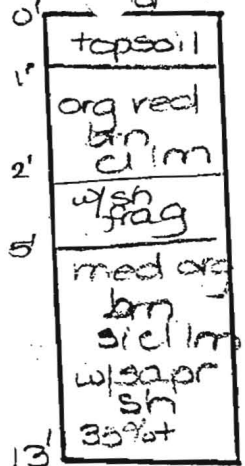 0'
topsoil
1'
org red
brn
cl lm
2'
w/sh
frag
5'
med org
brn
sicl lm
w/sapr
sh
35%+
13'